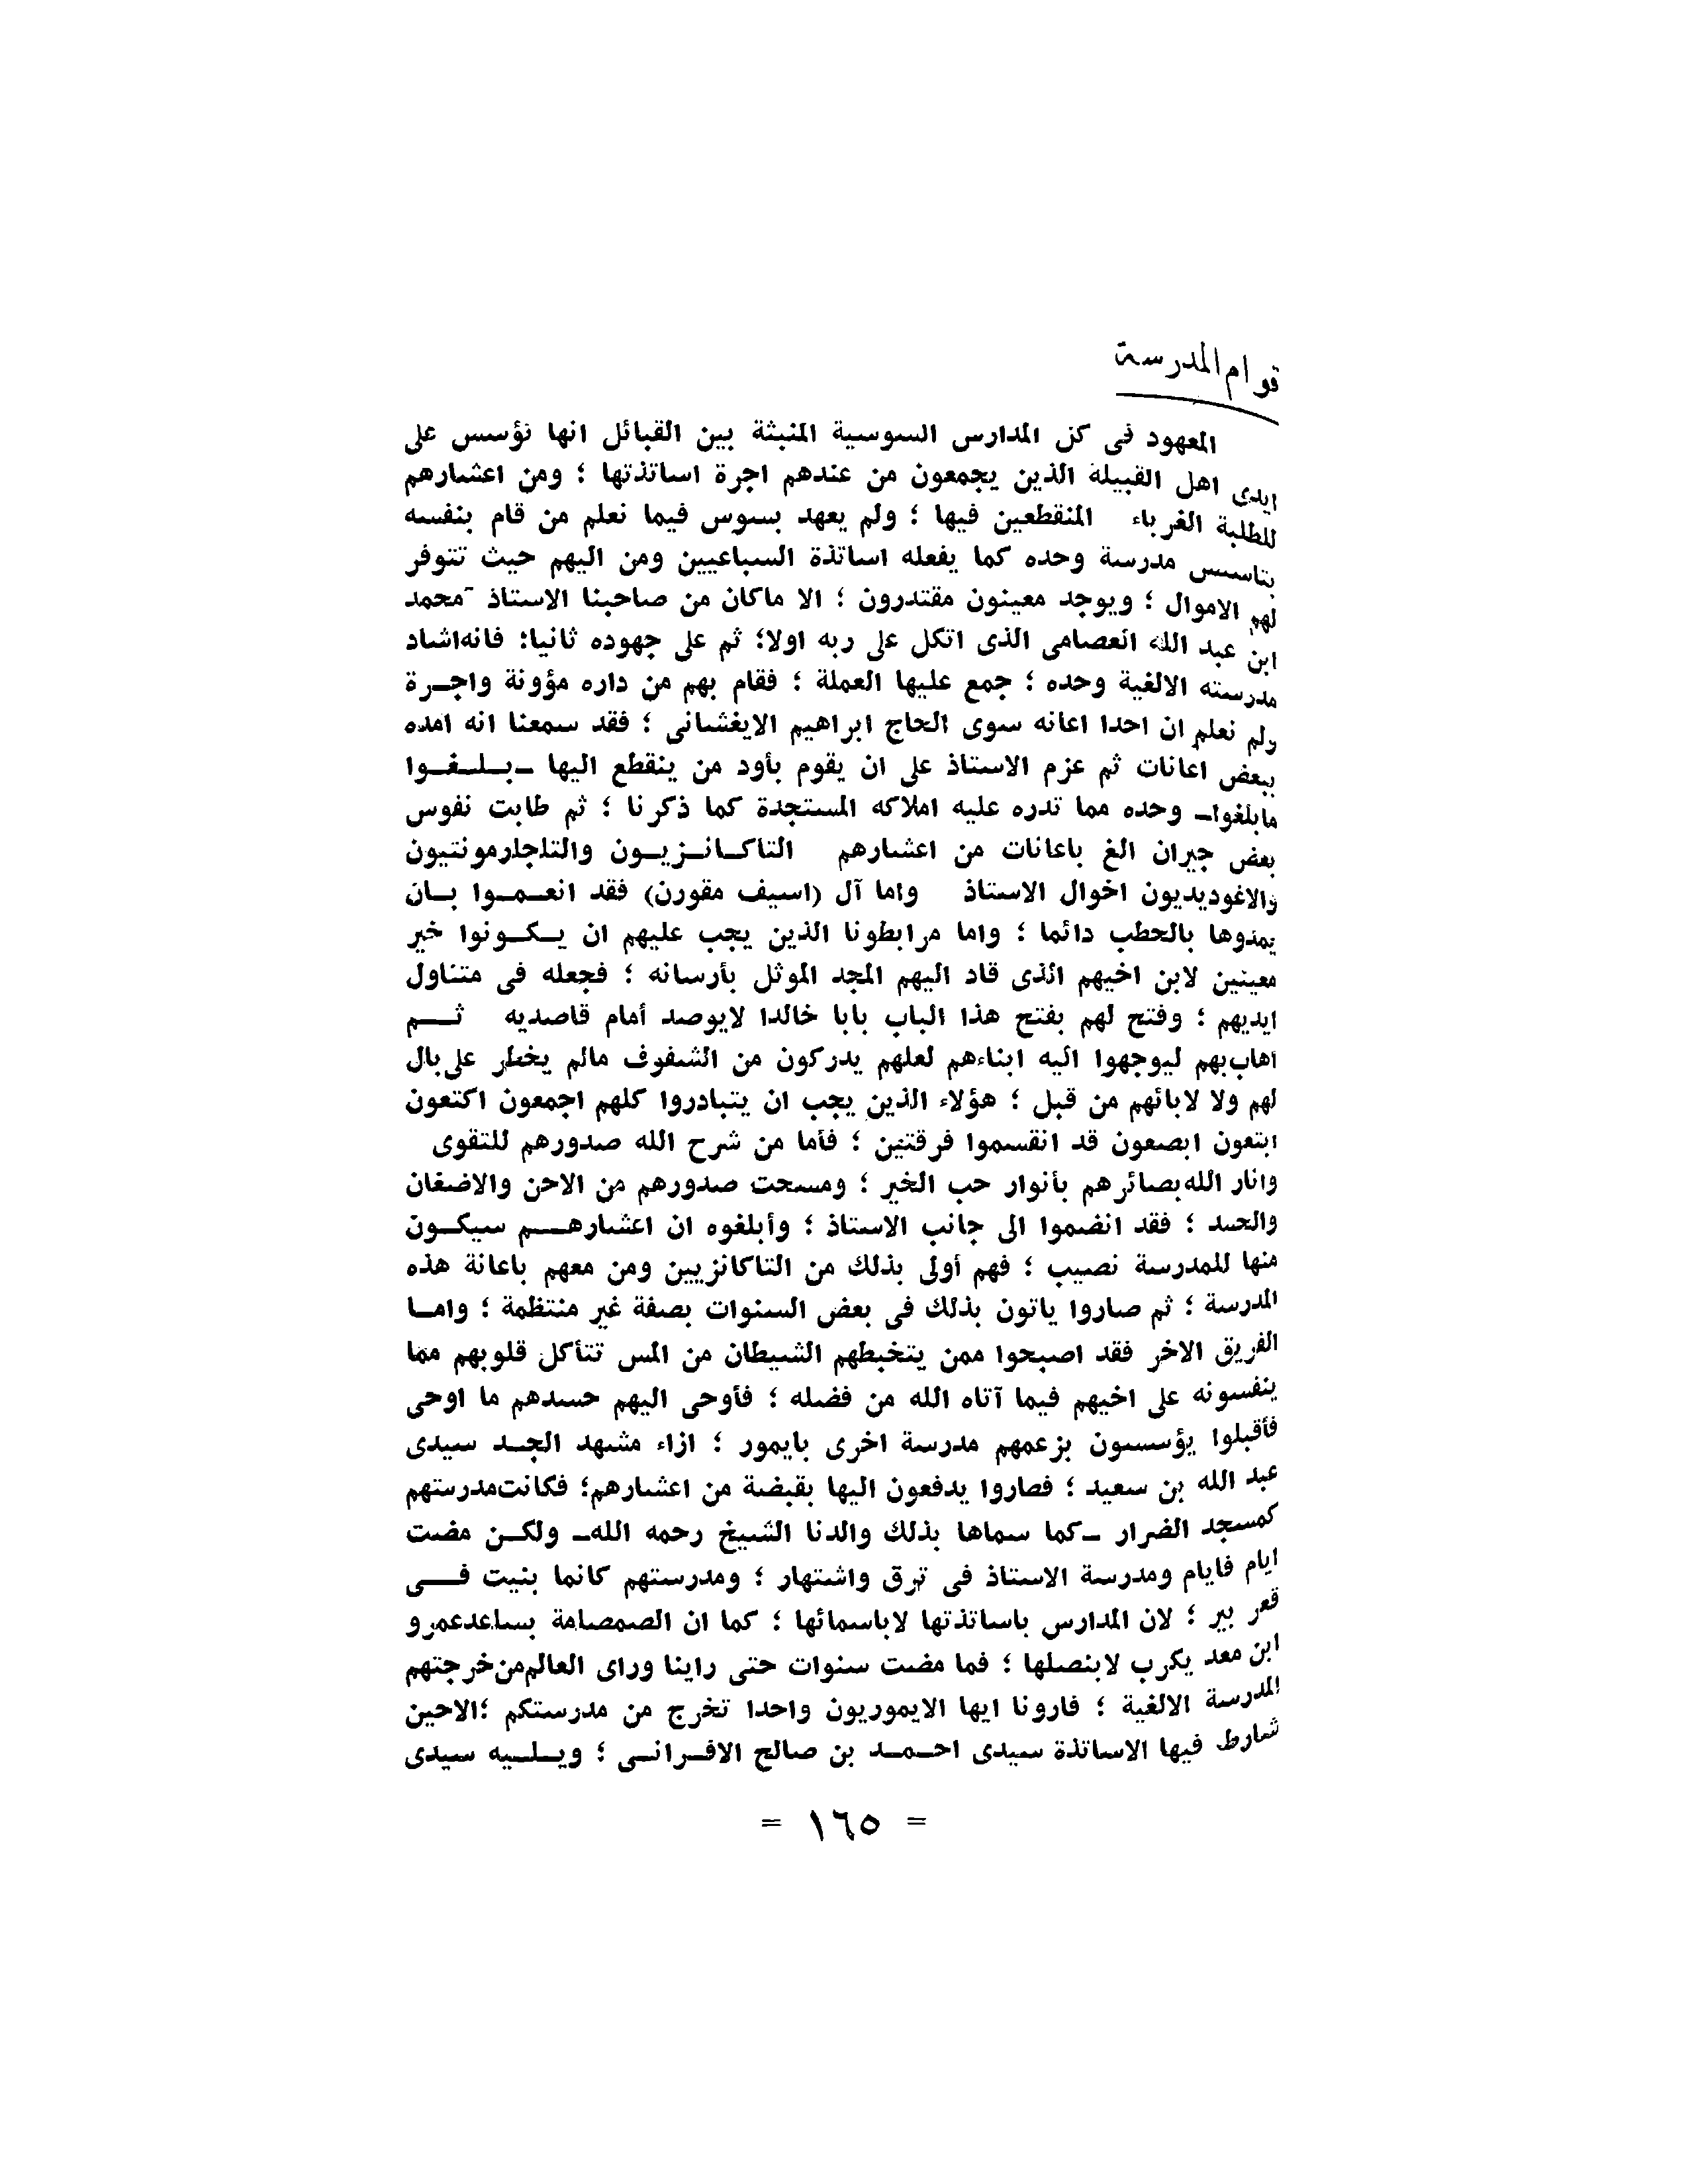 قوام المدرسة
المعهود فى كل المدارس السوسية المنبثة بين القبائل انها تؤسس على
ايدى اهل القبيلة الذين يجمعون من عندهم اجرة اساتذتها ؛ ومن اعشارهم
للطلبة الغرباء المنقطعين فيها ؛ ولم يعهد بسوس فيما نعلم من قام بنفسه
بتاسيس مدرسة وحده كما يفعله اساتذة السباعيين ومن اليهم حيث تتوفر
لهم الاموال ؛ ويوجد معينون مقتدرون ؛ الا ماكان من صاحبنا الاستاذ محمد
ابن عبد الله العصامى الذى اتكل على ربه اولا؛ ثم على جهوده ثانيا؛ فانه اشاد
مدرسته الالغية وحده ؛ جمع عليها العملة ؛ فقام بهم من داره مؤونة واجـرة
ولم نعلم ان احدا اعانه سوى الحاج ابراهيم الايغشانى ؛ فقد سمعنا انه امده
ببعض اعانات ثم عزم الاستاذ على ان يقوم بأود من ينقطع اليها ـ بـلـغـوا
مابلغوا ـ وحده مما تدره عليه املاكه المستجدة كما ذكرنا ؛ ثم طابت نفوس
بعض جيران الغ باعانات من اعشارهم التاكـانـزيـون والتاجارمونتيون
والاغوديديون اخوال الاستاذ واما آل (اسيف مقورن) فقد انعـمـوا بـان
يمدوها بالحطب دائما ؛ واما مرابطونا الذين يجب عليهم ان يـكـونوا خير
معينين لابن اخيهم الذى قاد اليهم المجد الموثل بأرسانه ؛ فجعله فى متناول
ايديهم ؛ وفتح لهم بفتح هذا الباب بابا خالدا لايوصد أمام قاصديه ثـــم
اهاب بهم ليوجهوا اليه ابناءهم لعلهم يدركون من الشفوف مالم يخطر على بال
لهم ولا لابائهم من قبل ؛ هؤلاء الذين يجب ان يتبادروا كلهم اجمعون اكتعون
ابتعون ابصعون قد انقسموا فرقتين ؛ فأما من شرح الله صدورهم للتقوى
وانار الله بصائرهم بأنوار حب الخير ؛ ومسحت صدورهم من الاحن والاضغان
والحسد ؛ فقد انضموا الى جانب الاستاذ ؛ وأبلغوه ان اعشارهــم سيكـون
منها للمدرسة نصيب ؛ فهم أولى بذلك من التاكانزيين ومن معهم باعانة هذه
المدرسة ؛ ثم صاروا ياتون بذلك فى بعض السنوات بصفة غير منتظمة ؛ وامـا
الفريق الاخر فقد اصبحوا ممن يتخبطهم الشيطان من المس تتأكل قلوبهم مما
ينفسونه على اخيهم فيما آتاه الله من فضله ؛ فأوحى اليهم حسدهم ما اوحى
فأقبلوا يؤسسون بزعمهم مدرسة اخرى بايمور ؛ ازاء مشهد الجـد سيدى
عبد الله بن سعيد ؛ فصاروا يدفعون اليها بقبضة من اعشارهم؛ فكانت مدرستهم
كمسجد الضرار ـ كما سماها بذلك والدنا الشيخ رحمه الله ـ ولكـن مضت
ايام فايام ومدرسة الاستاذ فى ترق واشتهار ؛ ومدرستهم كانما بنيت فـــى
قعر بير ؛ لان المدارس باساتذتها لاباسمائها ؛ كما ان الصمصامة بساعد عمرو
ابن معد يكرب لابنصلها ؛ فما مضت سنوات حتى راينا وراى العالم من خرجتهم
المدرسة الالغية ؛ فارونا ايها الايموريون واحدا تخرج من مدرستكم ؛الاحين
شارط فيها الاساتذة سيدى احـمـد بن صالح الافـرانـى ؛ ويـلـيه سيدى
= ١٦٥ =